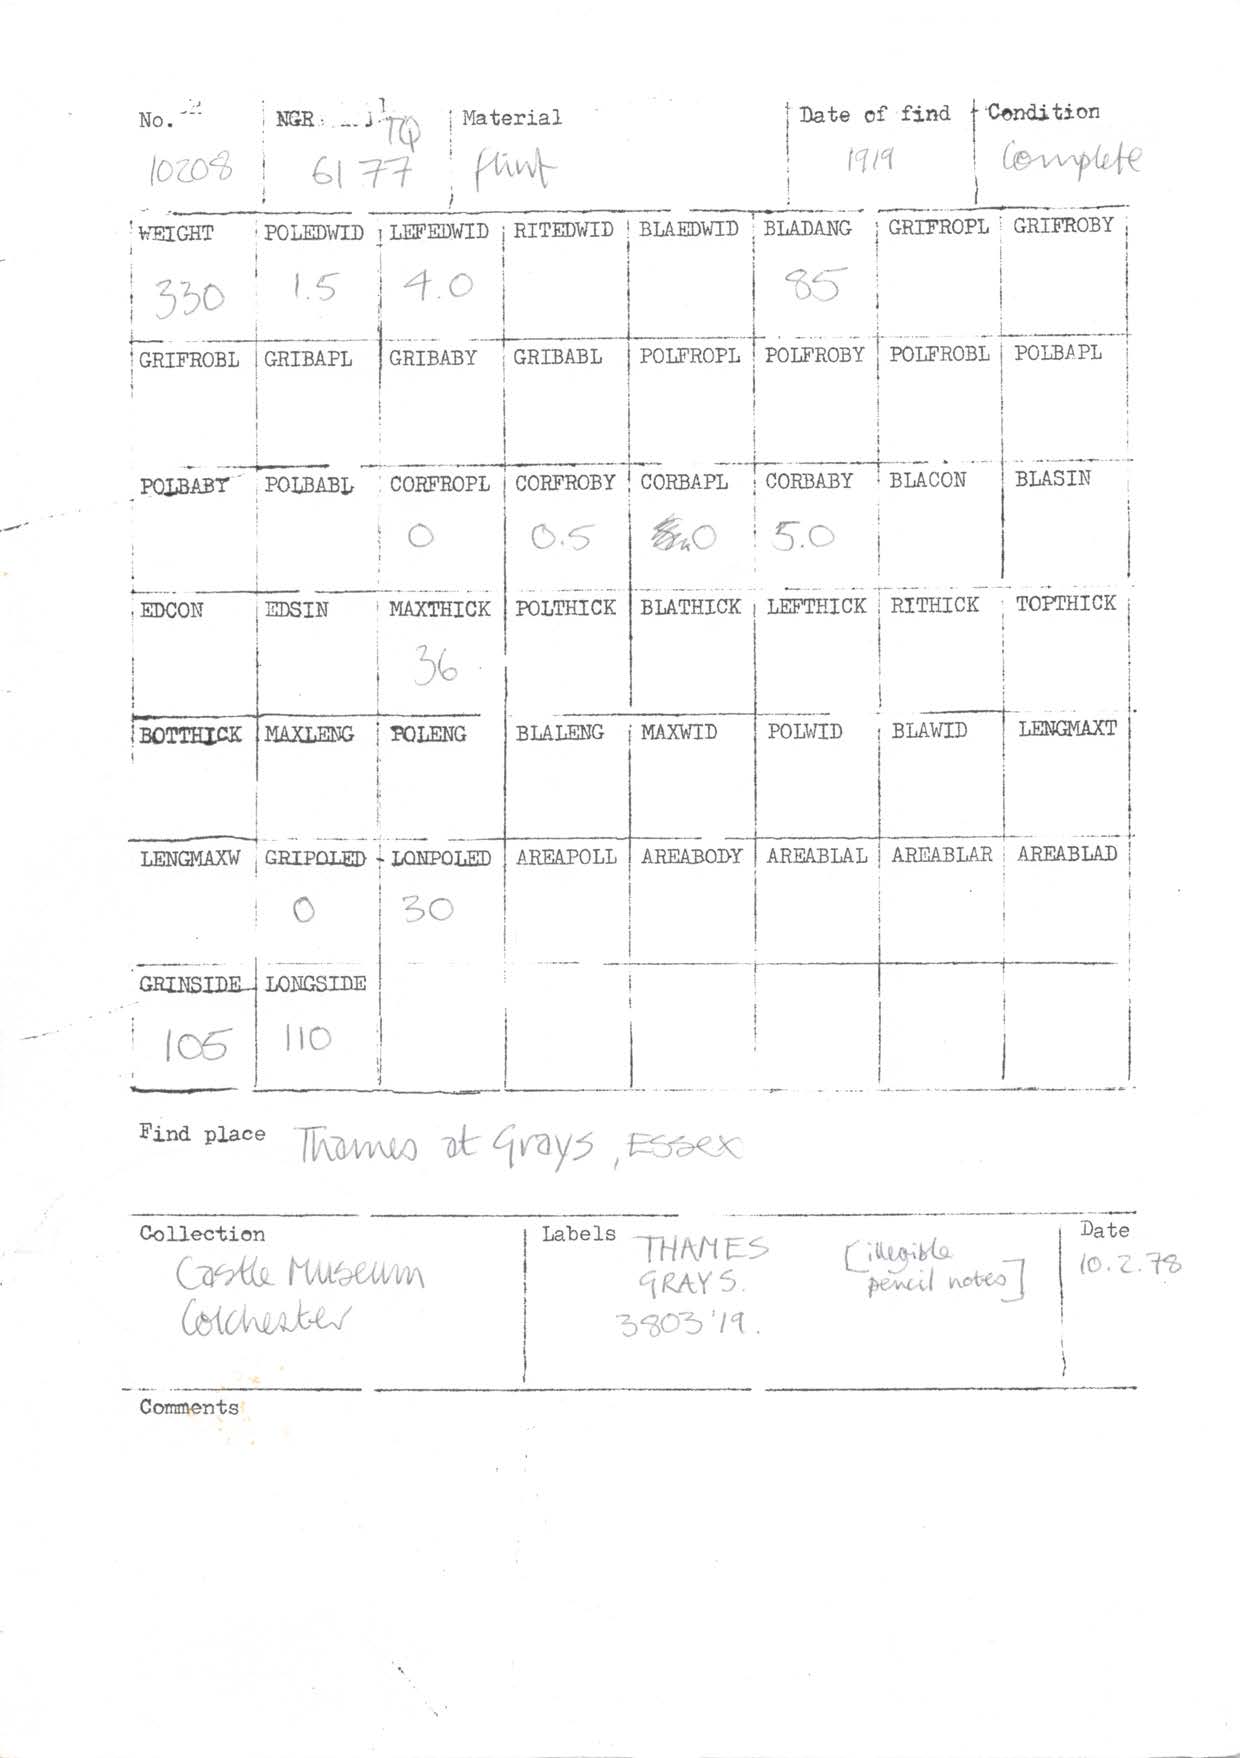 No. NGR TQ Material Date of find Condition
10208 6177 flint 1919 Complete
WEIGHT POLEDWID LEFEDWID RITEDWID BLAEDWID BLADANG GRIFROPL GRIFROBY
330 1.5 4.0 85
GRIFROBL GRIBAPL GRIBABY GRIBABL POLFROPL POLFROBY POLFROBL POLBAPL
POLBABY POLBABL CORFROPL CORFROBY CORBAPL CORBABY BLACON BLASIN
0 0.5 0 5.0
EDCON EDSIN MAXTHICK POLTHICK BLATHICK LEFTHICK RITHICK TOPTHICK
36
BOTTHICK MAXLENG POLENG BLALENG MAXWID POLWID BLAWID LENGMAXT
LENGMAXW GRIPOLED LONPOLED AREAPOLL AREABODY AREABLAL AREABLAR AREABLAD
0 30
GRINSIDE LONGSIDE
105 110
Find place Thames at Grays, Essex
Collection Labels Date
Castle Museum
Colchester
THAMES
GRAYS.
3803 '19.
[illegible
pencil notes]
10.2.78
Comments